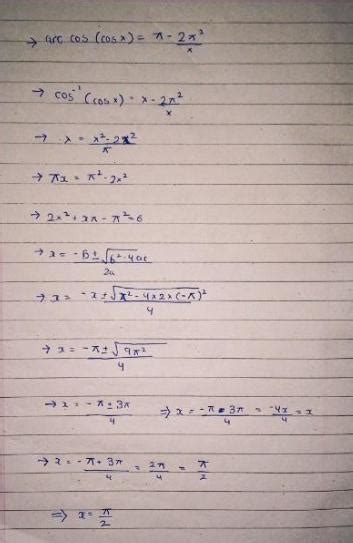 → arc cos (cos x) = π - 2π²/x
→ cos⁻¹ (cos x) = x - 2π²/x
→ x = x² - 2x²/π
→ πx = π² - 2x²
→ 2x² + xπ - π² = 0
→ x = -b ± √b² - 4ac / 2a
→ x = -x ± √π² - 4×2×(-π)² / 4
→ x = -π ± √9π² / 4
→ x = -π ± 3π / 4 ⇒ x = -π - 3π / 4 = -4x / 4 = x
→ x = -π + 3π / 4 = 2π / 4 = π / 2
⇒ x = π / 2